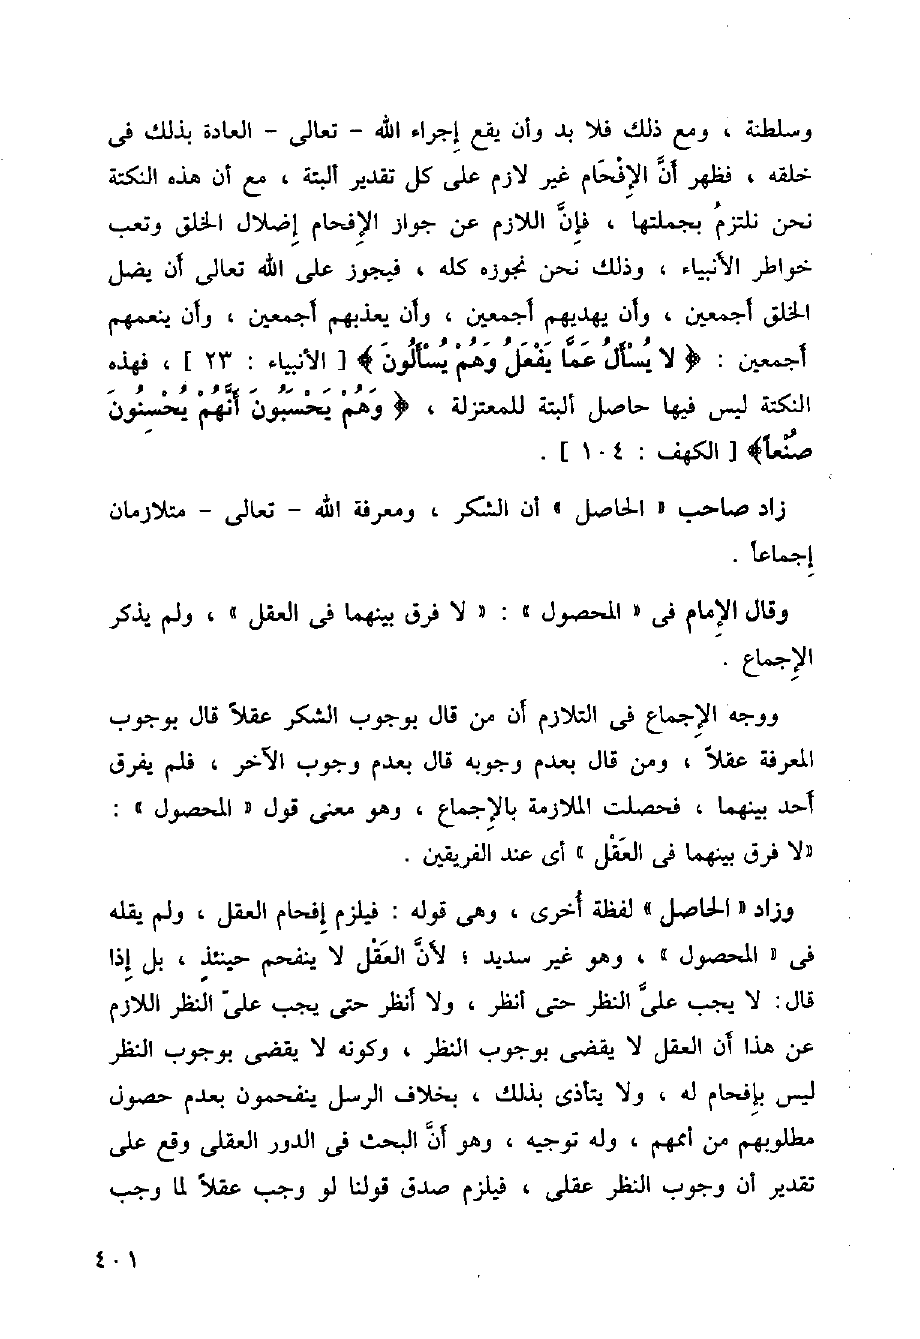 وسلطنة ، ومع ذلك فلا بد وأن يقع إِجراء الله – تعالى – العادة بذلك فى
خلقه ، فظهر أنَّ الإِفْحَام غير لازم على كل تقدير ألبتة ، مع أن هذه النكتة
نحن نلتزمُ بجملتها ، فإِنَّ اللازم عن جواز الإِفحام إِضلال الخلق وتعب
خواطر الأنبياء ، وذلك نحن نجوزه كله ، فيجوز على الله تعالى أن يضل
الخلق أجمعين ، وأن يهديهم أجمعين ، وأن يعذبهم أجمعين ، وأن ينعمهم
أجمعين : ﴿ لا يُسْأَلُ عَمَّا يَفْعَلُ وَهُمْ يُسْأَلُونَ ﴾ [ الأنبياء : ٢٣ ] ، فهذه
النكتة ليس فيها حاصل ألبتة للمعتزلة ، ﴿ وَهُمْ يَحْسَبُونَ أَنَّهُمْ يُحْسِنُونَ
صُنْعاً﴾ [ الكهف : ١٠٤ ] .
زاد صاحب « الحاصل » أن الشكر ، ومعرفة الله – تعالى – متلازمان
إِجماعاً .
وقال الإِمام فى « المحصول » : « لا فرق بينهما فى العقل » ، ولم يذكر
الإِجماع .
ووجه الإِجماع فى التلازم أن من قال بوجوب الشكر عقلاً قال بوجوب
المعرفة عقلاً ، ومن قال بعدم وجوبه قال بعدم وجوب الآخر ، فلم يفرق
أحد بينهما ، فحصلت الملازمة بالإِجماع ، وهو معنى قول « المحصول » :
«لا فرق بينهما فى العَقْل » أى عند الفريقين .
وزاد « الحاصل » لفظة أُخرى ، وهى قوله : فيلزم إِفحام العقل ، ولم يقله
فى « المحصول » ، وهو غير سديد ؛ لأنَّ العَقْل لا ينفحم حينئذٍ ، بل إِذا
قال: لا يجب علىَّ النظر حتى أنظر ، ولا أنظر حتى يجب علىّ النظر اللازم
عن هذا أن العقل لا يقضى بوجوب النظر ، وكونه لا يقضى بوجوب النظر
ليس بإِفحام له ، ولا يتأذى بذلك ، بخلاف الرسل ينفحمون بعدم حصول
مطلوبهم من أممهم ، وله توجيه ، وهو أنَّ البحث فى الدور العقلى وقع على
تقدير أن وجوب النظر عقلى ، فيلزم صدق قولنا لو وجب عقلاً لما وجب
٤٠١